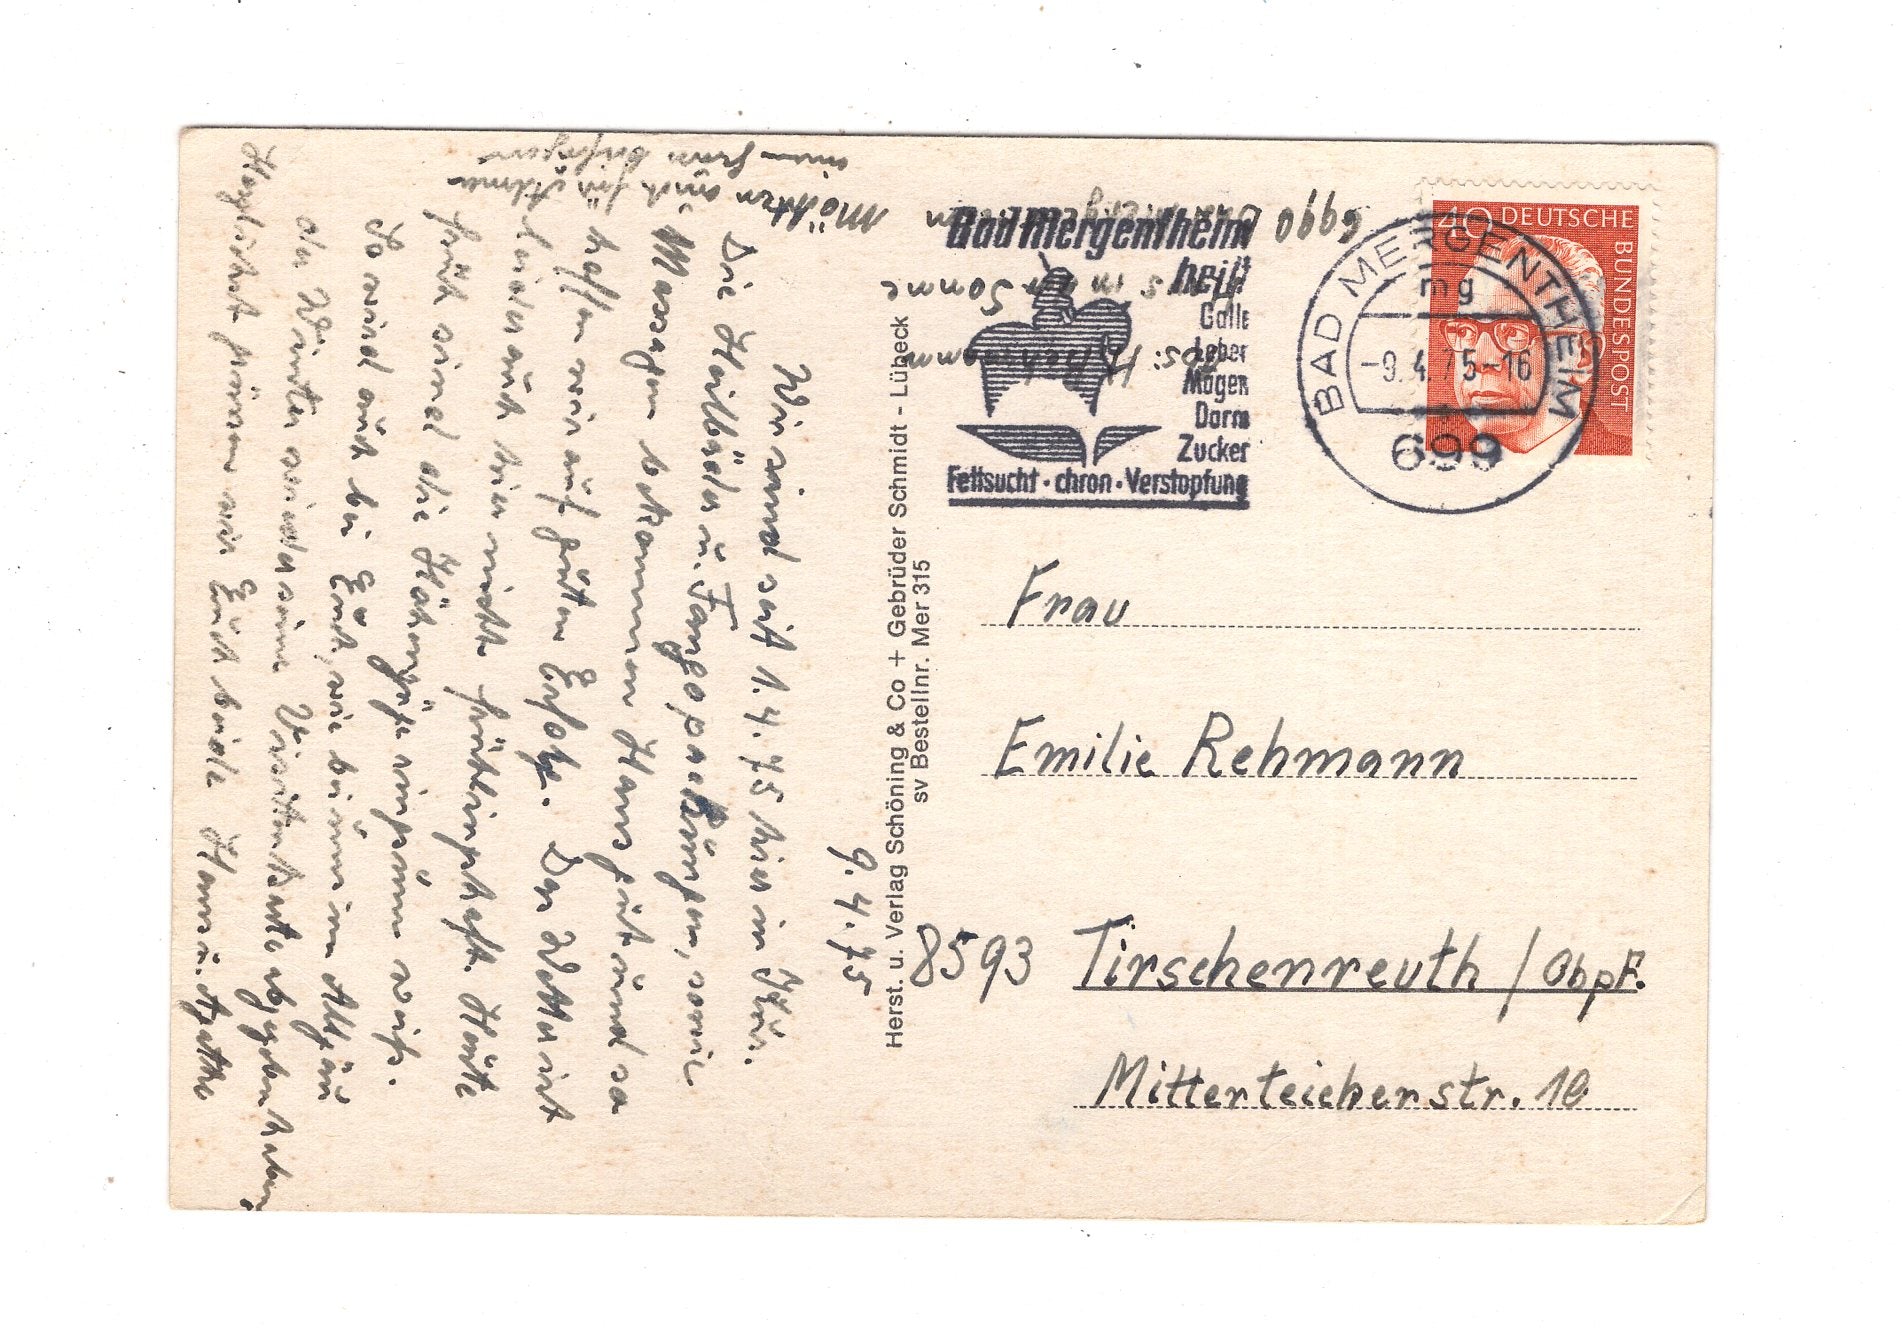 9.4.75
Wir sind seit 1.4.75 hier in Kur.
Die Heilbäder u. Fangopackungen, sowie
Massagen bekommen Hans gut und so
hoffen wir auf guten Erfolg. Das Wetter ist
leider auch hier nicht frühlingshaft. Heute
früh sind die Höhenzüge ringsum weiß.
So wird auch bei Euch, wie bei uns im Allgäu
der Winter wieder seine Visitenkarte abgegeben haben.
Herzlichst grüßen wir Euch beide Hans u. Agathe
Möchten auch für Alma
einen Gruß beifügen
6990
Sonne
Bad Mergentheim
heißt
Galle
Leber
Magen
Darm
Zucker
Fettsucht · chron · Verstopfung
BAD MERGENTHEIM
mg
-9.4.75-16
699
40 DEUTSCHE
BUNDESPOST
Herst. u. Verlag Schöning & Co + Gebrüder Schmidt - Lübeck
sv Bestellnr. Mer 315
Frau
Emilie Rehmann
8593 Tirschenreuth / Obpf.
Mitterteicherstr. 10